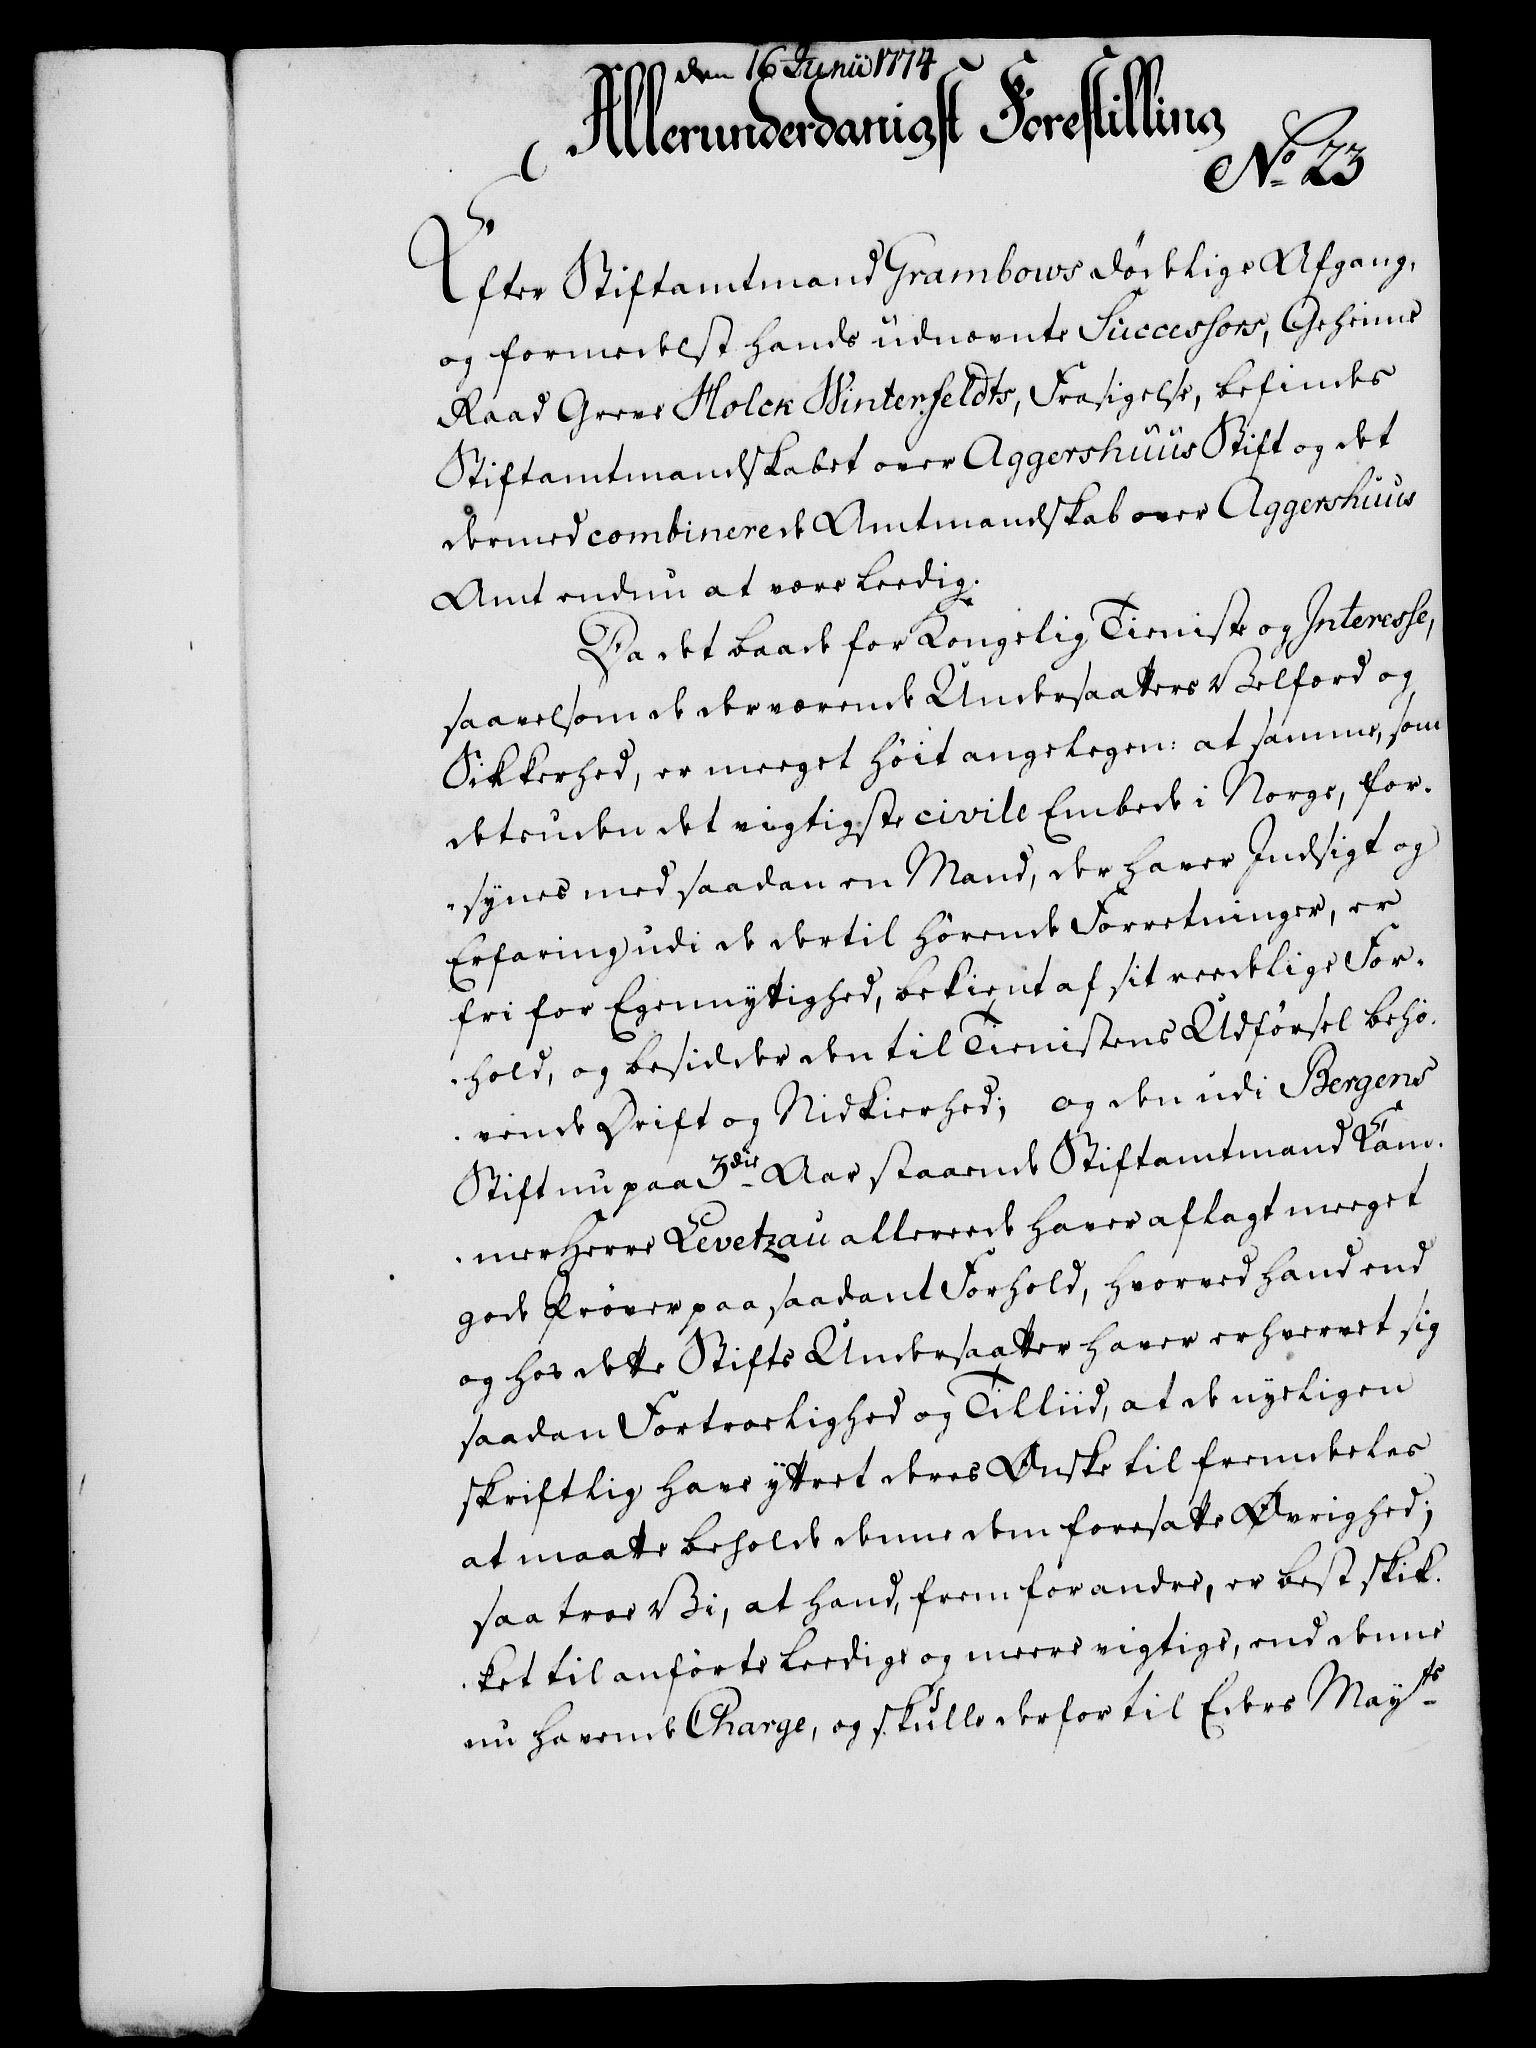 den 16 Junii 1774
Allerunderdanigst Forestilling
No 23
Efter Stiftamtmand Grambows dödelige Afgang,
og formedelst hands udnævnte Successors, Geheime
Raad Greve Holck Winterfeldts, Frasigelse, befindes
Stiftamtmandskabet over Aggershuus Stift og det
dermed combinerede Amtmandskab over Aggershuus
Amt endnu at være leedig.
Da det baade for Kongelig Tieniste og Interesse,
saavelsom de derværende Undersaatters Velfærd og
Sikkerhed, er meeget höit angelegen: at samme, som
desuden det vigtigste civile Embede i Norge, for-
-synes med saadan en Mand, der haver Indsigt og
Erfaring udi de dertil hörende Forretninger, er
fri for Egennyttighed, bekient af sit reedelige For-
-hold, og besidder den til Tienistens Udförsel behö-
-vende Drift og Nidkierhed; og den udi Bergens
Stift nu paa 3die Aar staaende Stiftamtmand Kam-
-merHerre Levetzau allereede haver aflagt meeget
gode Pröver paa saadant Forhold, hvorved hand end
og hos dette Stifts Undersaatter haver erhvervet sig
saadan Fortroelighed og Tilliid, at de nyeligen
skriftlig have yttret deres Ønske til fremdeeles
at maatte beholde denne dem foresatte Øvrighed;
saa troe Vi, at hand, frem for andre, er best skik-
-ket til anförte leedige og meere vigtige, end denne
nu havende Charge, og skulle derfor til Eders Mayts